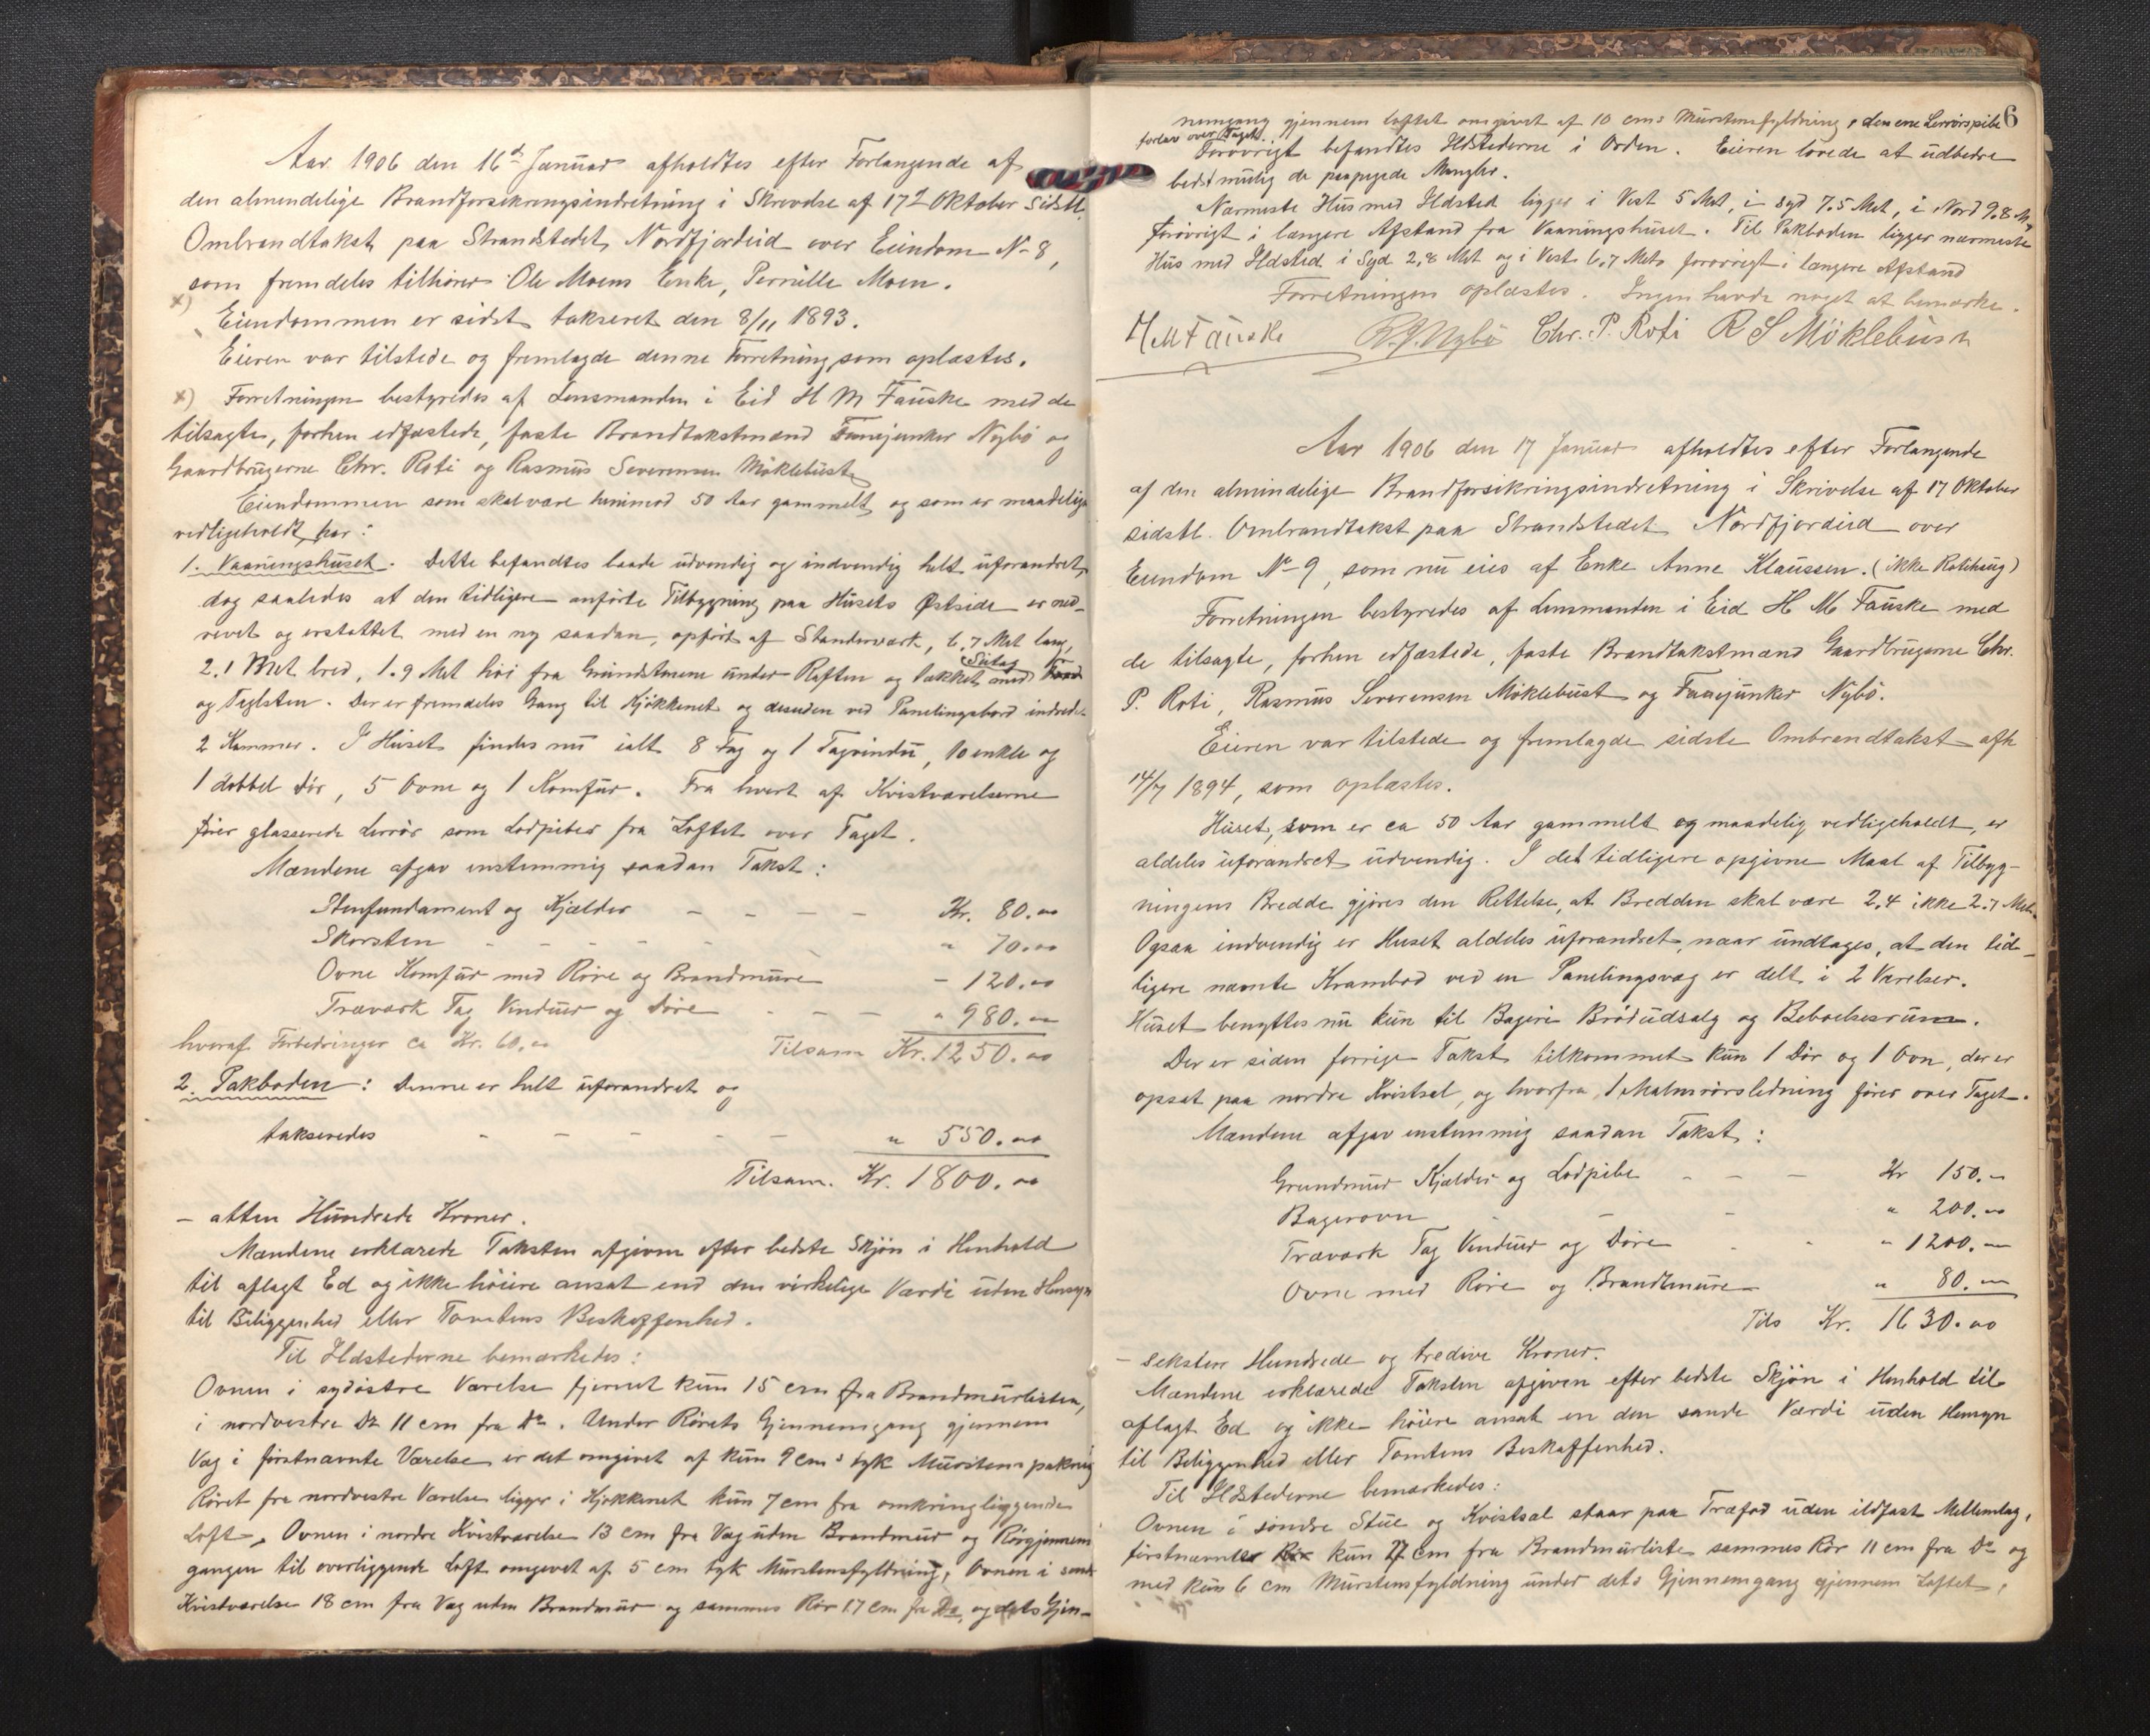 Aar 1906 den 16d Januar afholdtes efter Forlangende af
den almendelige Brandforsikringsindretning i Skrivelse af 17d Oktober sidstl.
Ombrandtakst paa Strandstedet Nordfjordeid over Eiendom No 8,
som fremdeles tilhører Ole Moens Enke, Pernille Moen.
x) Eiendommen er sidst takseret den 8/11 1893.
Eieren var tilstede og fremlagde denne Forretning som oplæstes.
x) Forretningen bestyredes af Lensmanden i Eid H M Fauske med de
tilsagte, forhen edfæstede, faste Brandtakstmænd Fanejunker Nybö og
Gaardbrugerne Chr. Roti og Rasmus Severensen Möklebust
Eiendommen som skal være henimod 50 Aar gammelt og som er maadelig
vedligeholdt har:
1. Vaaningshuset. Dette befandtes baade udvendig og indvendig helt uforandret,
dog saaledes at den tidligere anførte Tilbygning paa Husets Østside er ned-
revet og erstattet med en ny saadan, opført af Standerværk, 6,7 Met lang,
2.1 Met bred, 1.9 Met høi fra Grundstenene under Raften og tækket med
og Teglsten. Der er fremdeles Gang til Kjøkkenet og desuden ved Panelingsbord indredet
2 Kammer. I Huset findes nu ialt 8 Fag og 1 Tagvindu, 10 enkle og
1 dobbel Dør, 5 Ovne og 1 Komfur. Fra hvert af Kvistværelserne
fører glasserede Lerrør som Lodpiber fra Loftet over Taget.
Mændene afgav enstemmig saadan Takst:
Stenfundament og Kjælder - - - - Kr. 80.00
Skorsten - - - - - - " 70.00
Ovne Komfur med Røre og Brandmure - 120.00
Træværk Tag Vinduer og Døre - - - " 980.00
hveraf Forbedringer ca Kr. 60.00 Tilsam Kr. 1250.00
2. Pakboden: Denne er helt uforandret og
takseredes - - - - - " 550.00
Tilsam. Kr. 1800.00
- atten Hundrede Kroner.
Mændene erklærede Taksten afgiven efter bedste Skjøn i Henhold
til aflagt Ed og ikke høiere ansat end den virkelige Værdi uden Hensyn
til Beliggenhed eller Tomtens Beskaffenhed.
Til Ildstederne bemærkedes:
Ovnen i sydøstre Værelse fjernet kun 15 cm fra Brandmurlisten,
i nordvestre Do 11 cm fra Do. Under Rørets Gjennemgang gjennem
Væg i førstnævnte Værelse er det omgivet af kun 9 cm's tyk Murstenspakning
Røret fra nordvestre Værelse ligger i Kjøkkenet kun 7 cm fra omkringliggende
Loft, Ovnen i nordre Kvistværelse 13 cm fra Væg uden Brandmur og Rørgjennem
gangen til overliggende Loft omgivet af 5 cm tyk Murstensfyldning, Ovnen i søndre
Kvistværelse 18 cm fra Væg uden Brandmur og sammes Rør 17 cm fra Do, og dets Gjen-
6
nemgang gjennem loftet omgivet af 10 cms Murstensfyldning, den ene Lerrørspibe
forlav over Taget.
Forøvrigt befandtes Ildstederne i Orden. Eieren lovede at udbedre
bedst mulig de paapegede Mangler.
Nærmeste Hus med Ildsted ligger i Vest 5 Met, i syd 7.5 Met, i Nord 9.8 M,
forøvrigt i længere Afstand fra Vaaningshuset. Til Pakboden ligger nærmeste
Hus med Ildsted i Syd 2,8 Met og i Vest 6.7 Met, forøvrigt i længere Afstand
Forretningen oplæstes. Ingen havde noget at bemærke.
H M Fauske R.J. Nybö Chr. P. Roti R S Möklebust
Aar 1906 den 17 Januar afholdtes efter Forlangende
af den almindelige Brandforsikringsindretning i Skrivelse af 17 Oktober
sidstl. Ombrandtakst paa Strandstedet Nordfjordeid over
Eiendom No 9, som nu eies af Enke Anne Klaussen. (ikke Rotihaug)
Forretningen bestyredes af Lensmanden i Eid H M Fauske med
de tilsagte, forhen edfæstede, faste Brandtakstmænd Gaardbrugerne Chr.
P. Roti, Rasmus Severensen Möklebust og Fanejunker Nybö.
Eieren var tilstede og fremlagde sidste Ombrandtakst afh
14/7 1894, som oplæstes.
Huset, som er ca 50 Aar gammelt og maadelig vedligeholdt, er
aldeles uforandret udvendig. I det tidligere opgivne Maal af Tilbyg-
ningens Bredde gjøres den Rettelse, at Bredden skal være 2.4 ikke 2.7 Met.
Ogsaa indvendig er Huset aldeles uforandret, naar undtages, at den tid-
ligere nævnte Krambod ved en Panelingsvæg er delt i 2 Værelser.
Huset benyttes nu kun til Bageri Brødudsalg og Beboelsesrum.
Der er siden forrige Takst tilkommet kun 1 Dør og 1 Ovn, der er
opsat paa nordre Kvistsal, og hvorfra 1 Malmrørsledning fører over Taget.
Mændene afgav enstemmig saadan Takst:
Grundmur Kjælder og Lodpibe - - - Kr 150.-
Bagerovn - - - " 200.00
Træværk Tag Vinduer og Døre - - " 1200.-
Ovne med Røre og Brandmure " 80.00
Tils Kr. 1630.00
- seksten Hundrede og tredive Kroner.
Mændene erklærede Taksten afgiven efter bedste Skjøn i Henhold til
aflagt Ed og ikke høiere ansat en den sande Værdi uden Hensyn
til Beliggenhed eller Tomtens Beskaffenhed.
Til Ildstederne bemærkedes:
Ovnen i søndre Stue og Kvistsal staar paa Træfod uden ildfast Mellemlag,
førstnævntes kun 27 cm fra Brandmurliste sammes Rør 11 cm fra Do og
med kun 6 cm Murstensfyldning under dets Gjennemgang gjennem Loftet,